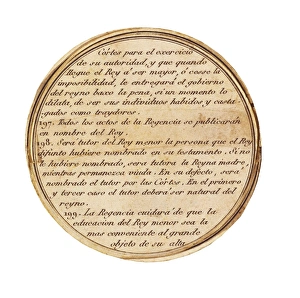 Córtes para el exercicio
de su autoridad, y que quando
llegue el Rey á ser mayor, ó cesse la
imposibilidad, le entregará el gobierno
del reyno baxo la pena, si un momento lo
dilata, de ser sus individuos habidos y casti-
gados como traydores.
197. Todos los actos de la Regencia se publicarán
en nombre del Rey.
198. Será tutor del Rey menor la persona que el Rey
difunto hubiere nombrado en su testamento. Si no
le hubiere nombrado, sera tutora la Reyna madre,
mientras permanezca viuda. En su defecto, será
nombrado el tutor por las Córtes. En el primero
y tercer caso el tutor deberá ser natural del
reyno.
199. La Regencia cuidará de que la
educacion del Rey menor sea la
mas conveniente al grande
objeto de su alta